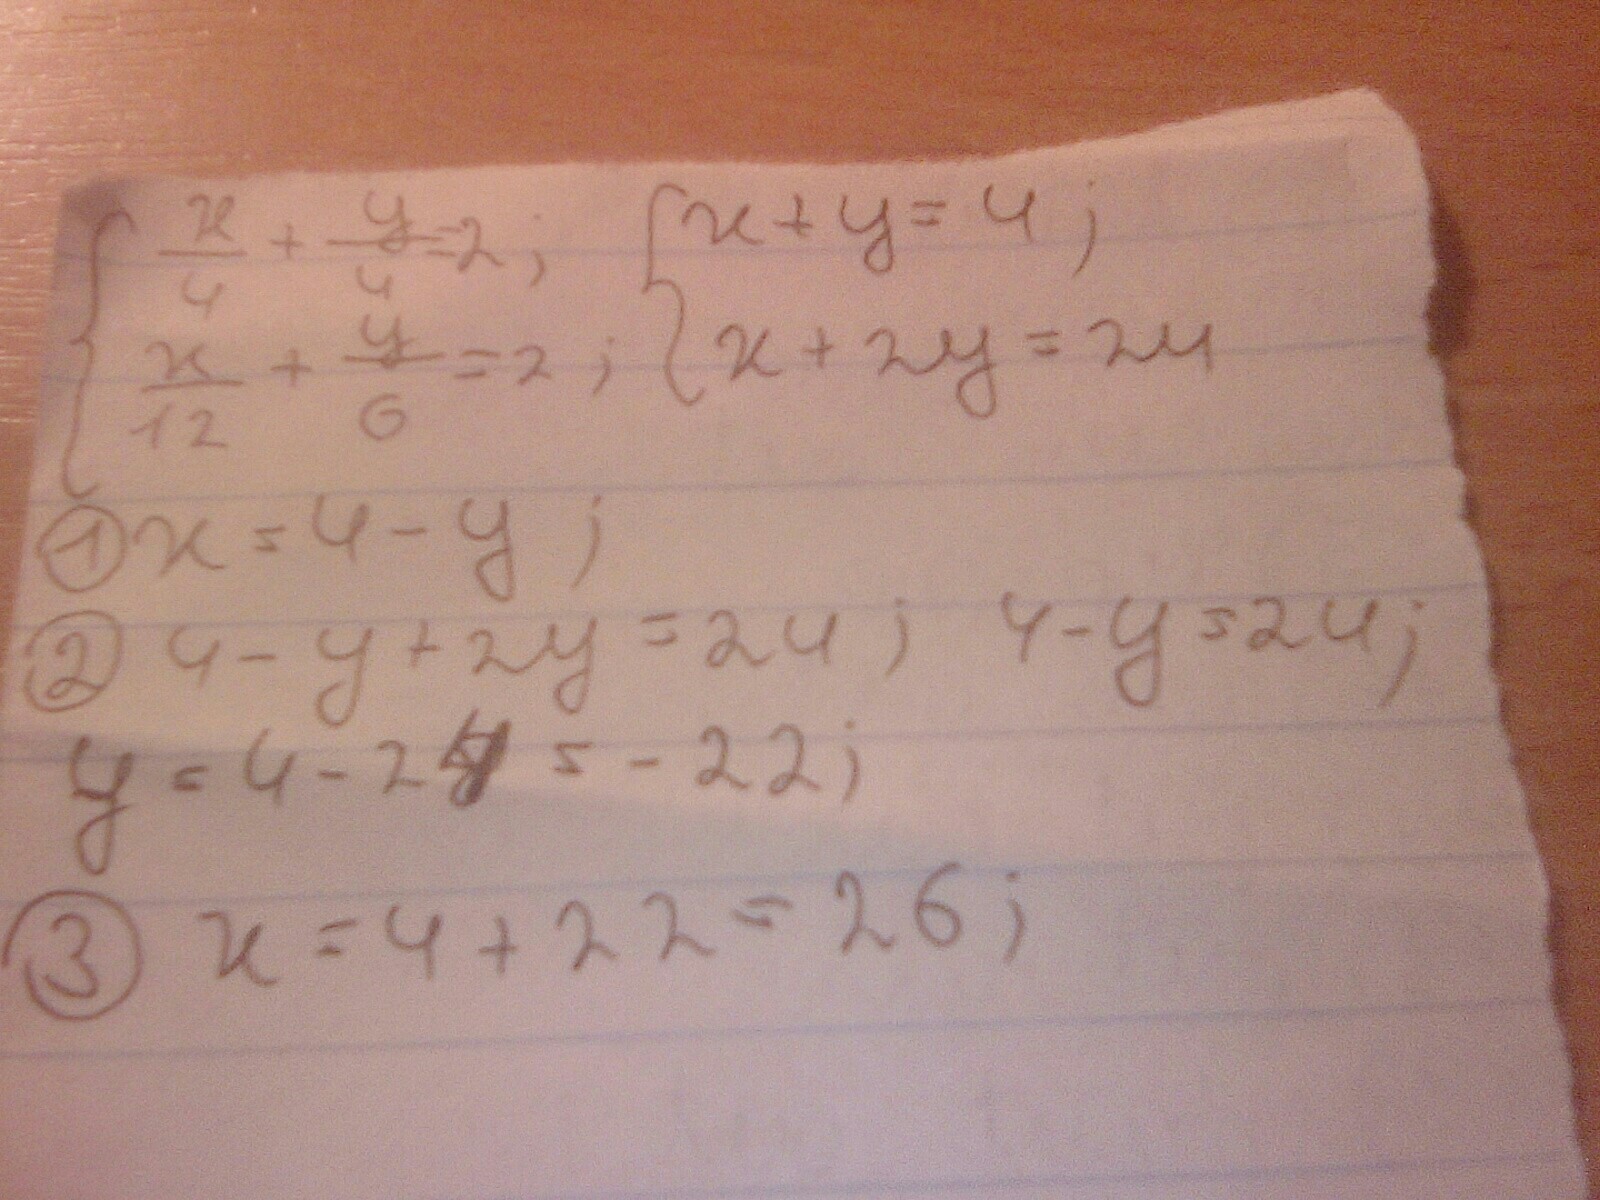 x/4 + y/4 = 2; { x + y = 4;
x/12 + y/6 = 2; { x + 2y = 24
① x = 4 - y;
② 4 - y + 2y = 24; 4 - y = 24;
y = 4 - 2 = -22;
③ x = 4 + 22 = 26;